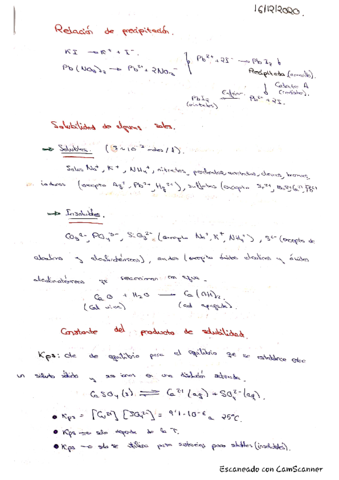 16/12/2020.
Relación de precipitación.
KI → K⁺ + I⁻
Pb(NO₃)₂ → Pb²⁺ + 2NO₃⁻
Pb²⁺ + 2I⁻ → PbI₂ ↓
Precipitado (amarillo).
PbI₂ (insoluble) Pb²⁺ + 2I⁻.
Solubilidad de algunas sales.
→ Solubles.
Sales Na⁺, K⁺, NH₄⁺, nitratos, percloratos, acetatos, cloruros, bromuros,
ioduros (excepto Ag⁺, Pb²⁺, Hg₂²⁺), sulfatos (excepto
→ Insolubles.
CO₃²⁻, PO₄³⁻, SiO₃²⁻ (excepto Na⁺, K⁺, NH₄⁺), S²⁻ (excepto de
alcalinos y alcalinotérreos), (excepto óxidos alcalinos y óxidos
alcalinotérreos que reaccionan con agua.
CaO + H₂O → Ca(OH)₂
(Cal viva) (cal apagada).
Constante del producto de solubilidad.
Kps: cte de equilibrio para el equilibrio que se establece entre
un soluto sólido y sus iones en una disolución saturada.
CaSO₄(s) ⇌ Ca²⁺(aq) + SO₄²⁻(aq).
• Kps = [Ca²⁺] [SO₄²⁻] = 9'1·10⁻⁶ a 25ºC.
• Kps → sólo depende de la T.
• Kps → sólo se utiliza para sustancias poco solubles (insolubles).
Escaneado con CamScanner